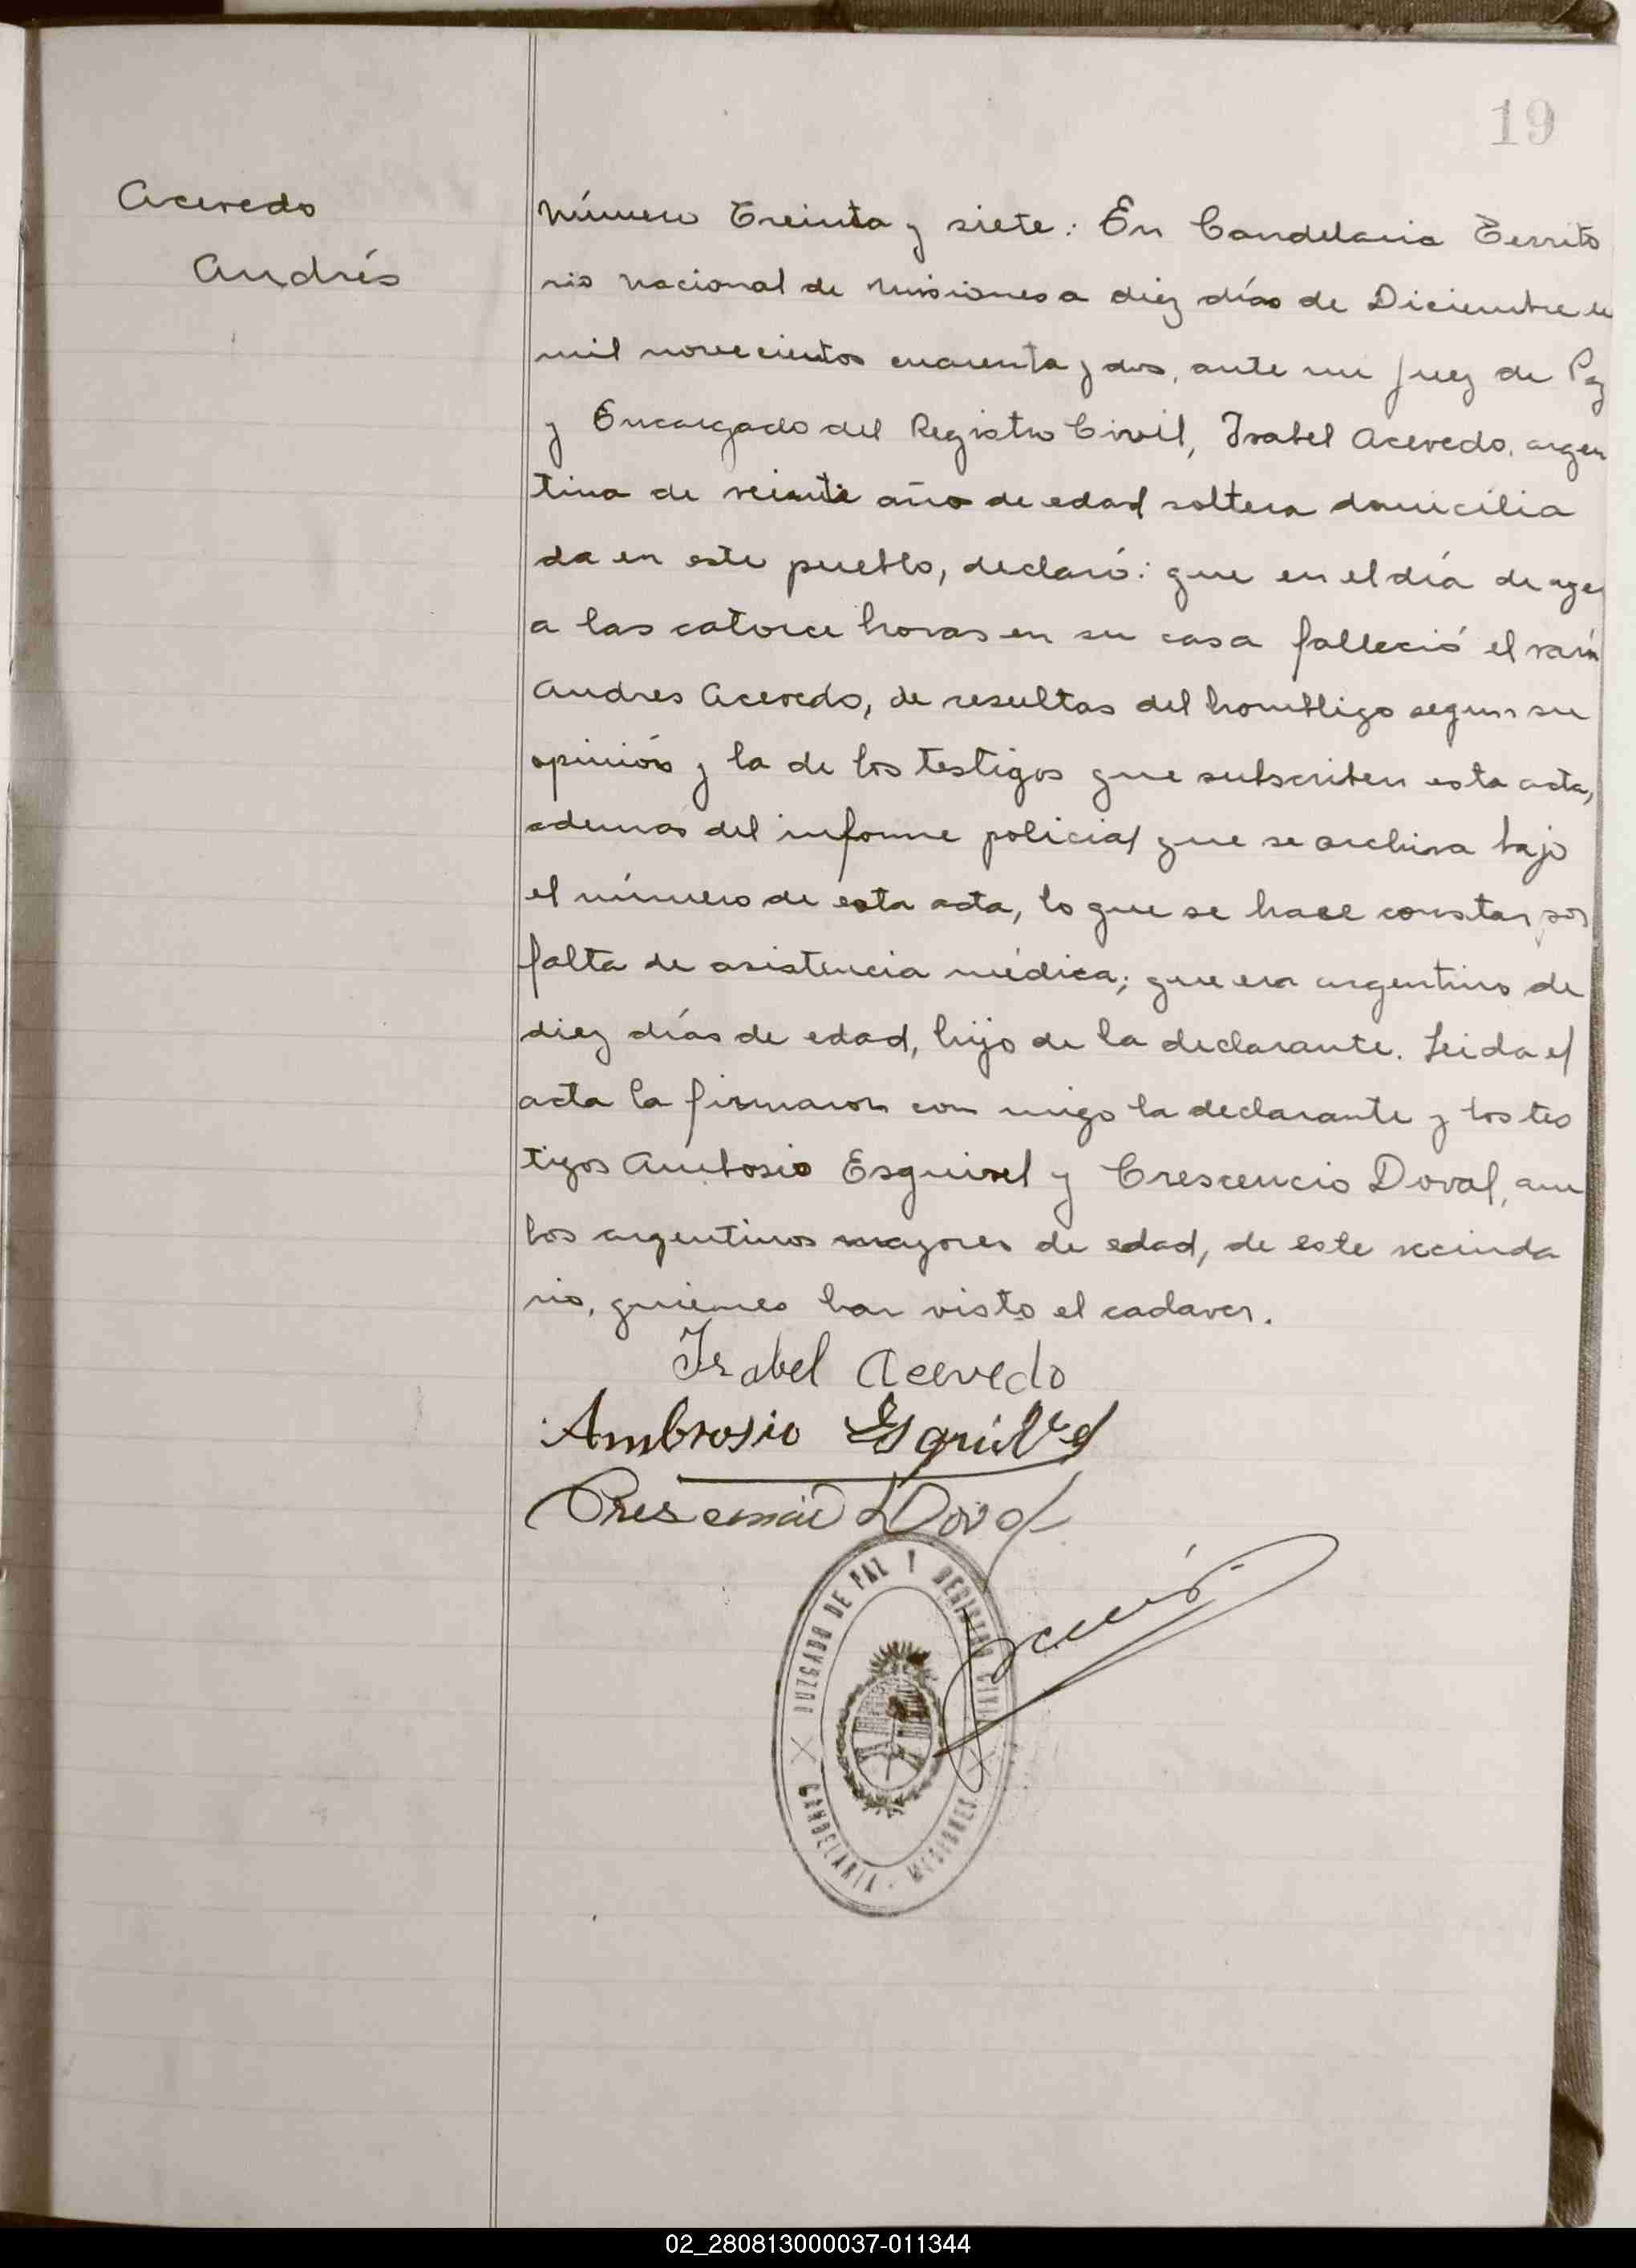 19
Acevedo
Andrés
Número Treinta y siete: En Candelaria Territo
rio Nacional de Misiones a diez días de Diciembre de
mil novecientos cuarenta y dos, ante mi Juez de Paz
y Encargado del Registro Civil, Isabel Acevedo, argen
tina de veinte año de edad soltera domicilia
da en este pueblo, declaró: que en el día de ayer
a las catorce horas en su casa falleció el varón
Andres Acevedo, de resultas del hombligo segun su
opinión y la de los testigos que subscriben esta acta,
ademas del informe policial que se archiva bajo
el número de esta acta, lo que se hace constar por
falta de asistencia médica; que era argentino de
diez días de edad, hijo de la declarante. Leida el
acta la firmaron con migo la declarante y los tes
tigos Ambosio Esquivel y Crescencio Doval, am
bos argentinos mayores de edad, de este vecinda
rio, quienes han visto el cadaver.
Isabel Acevedo
Ambrosio Esquivel
Doval
JUZGADO DE PAZ Y REGISTRO CIVIL
CANDELARIA - MISIONES
02_280813000037-011344